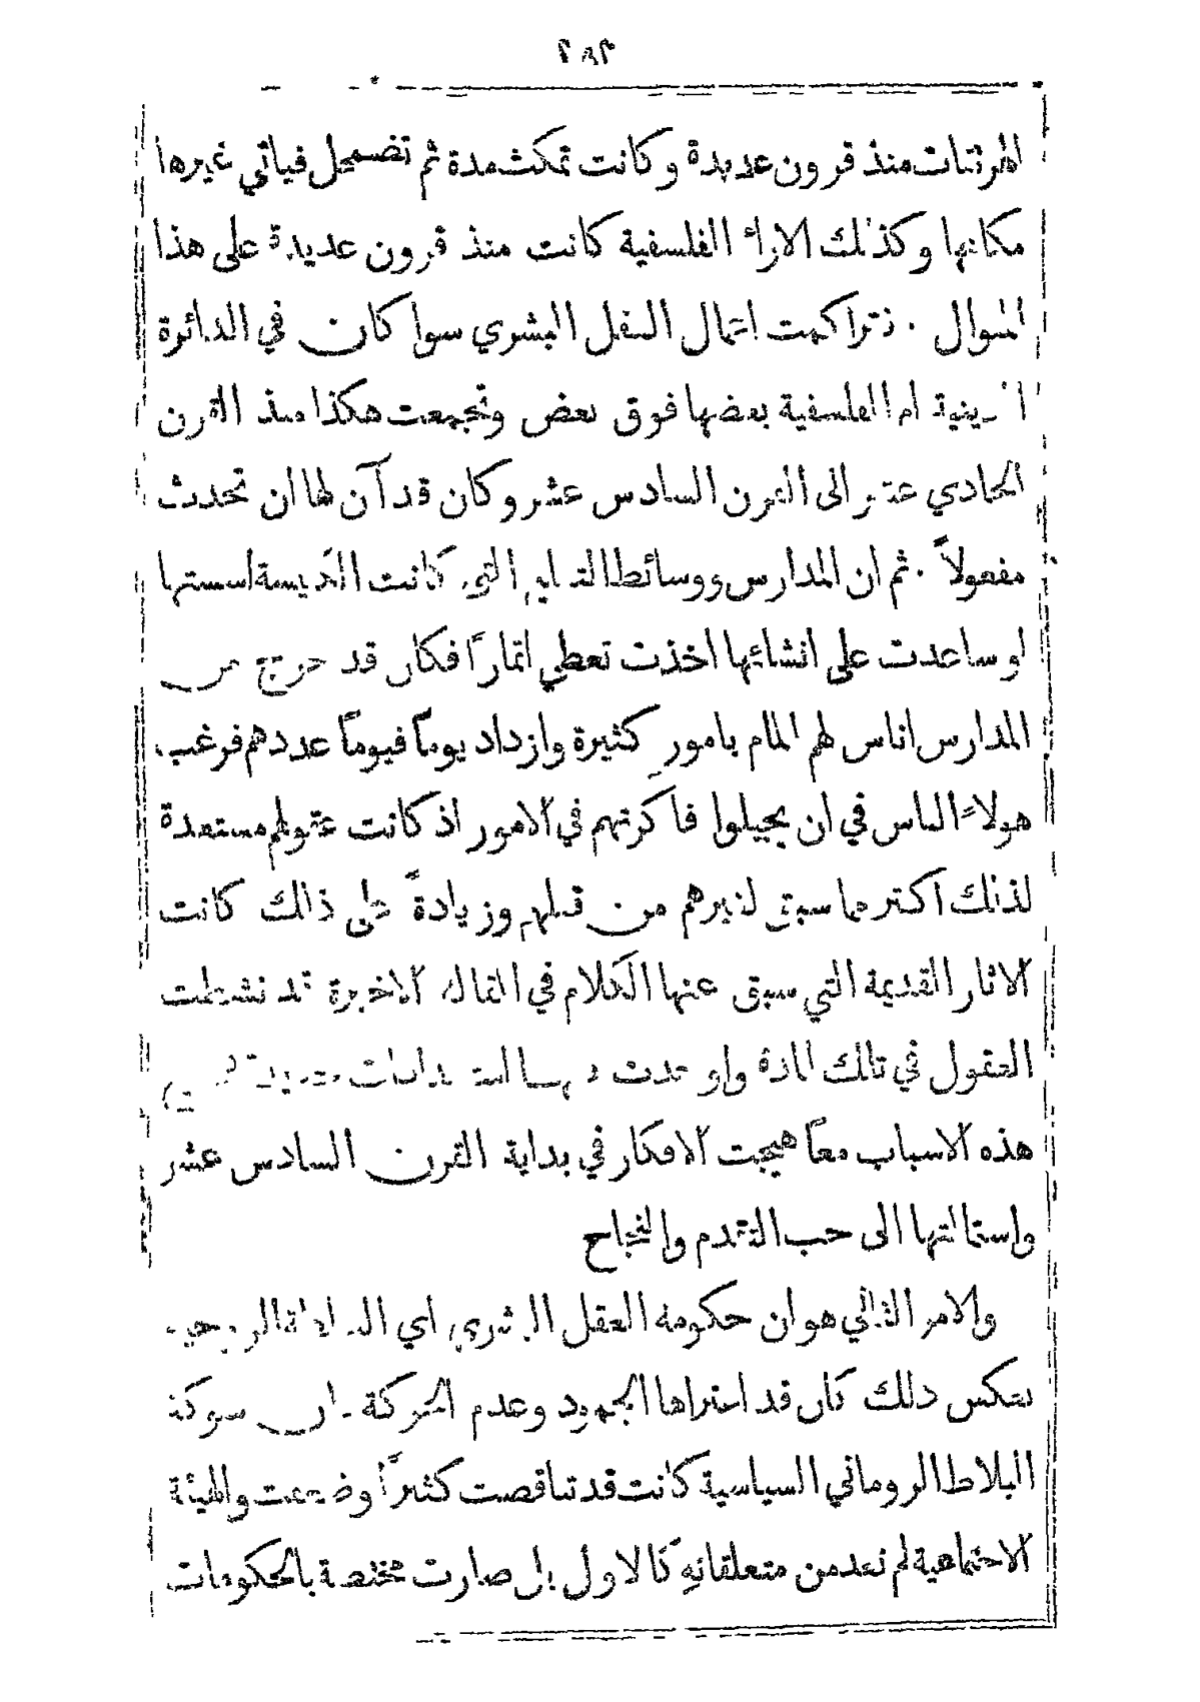 ٢٨٣
الهرتقات منذ قرون عديدة وكانت تمكث مدة ثم تضمحل فياتي غيرها
مكانها وكذلك الاراء الفلسفية كانت منذ قرون عديدة على هذا
المنوال . فتراكمت اعمال العقل البشري سوا كان في الدائرة
الدينية ام الفلسفية بعضها فوق بعض وتجمعت هكذا منذ القرن
الحادي عشر الى القرن السادس عشر وكان قد آن لها ان تحدث
مفعولاً . ثم ان المدارس ووسائط التعليم التي كانت الكنيسة اسستها
او ساعدت على انشائها اخذت تعطي اثمارًا فكان قد خرج من
المدارس اناس لهم المام بامور كثيرة وازداد يوماً فيوماً عددهم فرغب
هولاء الناس في ان يجيلوا فاكرتهم في الامور اذ كانت عقولهم مستعدة
لذلك اكثر مما سبق لغيرهم من قبلهم وزيادةً على ذلك كانت
الاثار القديمة التي سبق عنها الكلام في المقالة الاخيرة قد نشطت
العقول في تلك المدة واوجدت
هذه الاسباب معاً هيجت الافكار في بداية القرن السادس عشر
واستمالتها الى حب التقدم والنجاح
والامر الثاني هو ان حكومة العقل البشري اي السلطة الروحية
بعكس ذلك كان قد اعتراها الجمود وعدم الحركة فان شوكة
البلاط الروماني السياسية كانت قد تناقصت كثيرًا وضعفت والهيئة
الاجتماعية لم تعد من متعلقاتهِ كالاول بل صارت مختصة بالحكومات